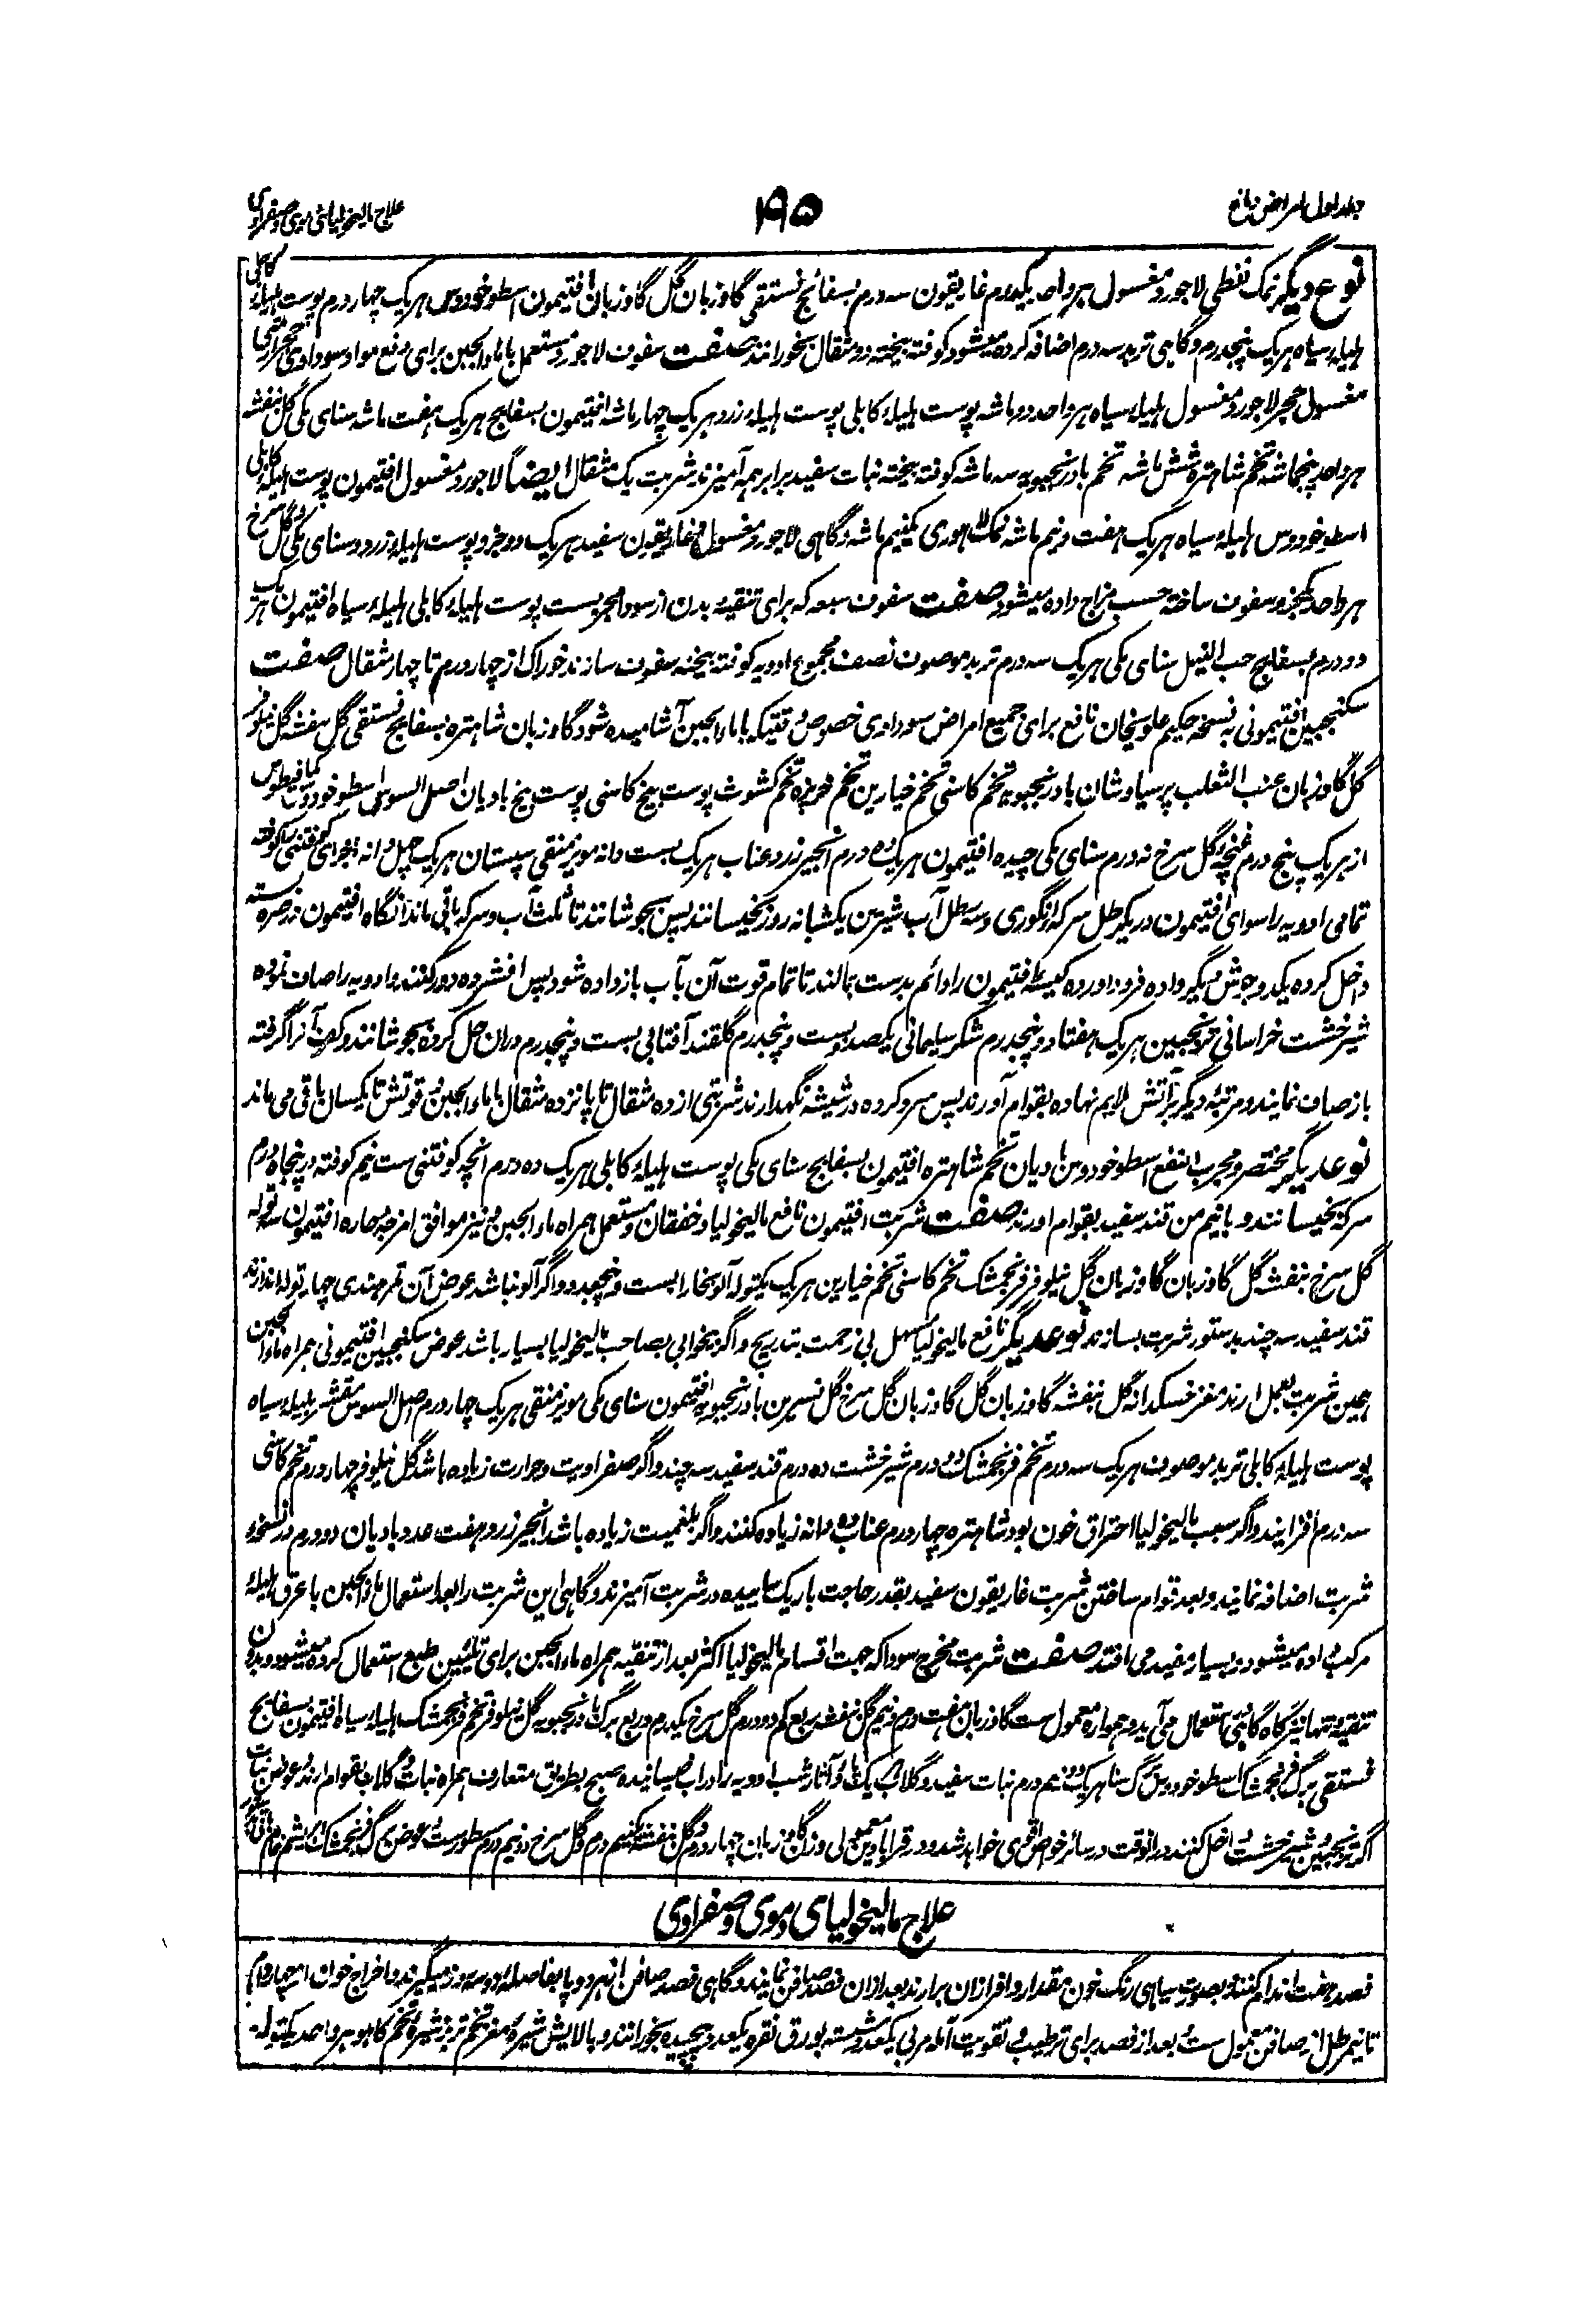 جلد اول امراض دماغ
۱۹۵
علاج مالیخولیای دموی و صفراوی
نوع دیگر نمک نفطی لاجورد مغسول هر واحد یکدرم غاریقون سه درم بسفائج فستقی گاوزبان گل گاوزبان افتیمون اسطوخودوس هر یک چهار درم پوست هلیله کابلی
هلیله سیاه هر یک پنجدرم و گاهی تربد سه درم اضافه کرده میشود کوفته بیخته دو مثقال بخورانند صفت سفوف لاجورد مستعمل با ماء الجبن برای دفع مواد سوداوی حجر ارمنی
مغسول حجر لاجورد مغسول هلیله سیاه هر واحد دو ماشه پوست هلیله کابلی پوست هلیله زرد هر یک چهار ماشه افتیمون بسفایج هر یک هفت ماشه سنای مکی گل بنفشه
هر واحد پنجماشه تخم شاهتره شش ماشه تخم بادرنجبویه سه ماشه کوفته بیخته نبات سفید برابر همه آمیزند شربت یک مثقال ایضاً لاجورد مغسول افتیمون پوست هلیله کابلی
اسطوخودوس هلیله سیاه هر یک هفت و نیم ماشه نمک لاهوری یکنیم ماشه و گاهی لاجورد مغسول و غاریقون سفید هر یک دو جزو پوست هلیله زرد و سنای مکی و گل سرخ
هر واحد یکجزو سفوف ساخته حسب مزاج داده میشود صفت سفوف سبعه که برای تنقیه بدن از سودا مجربست پوست هلیله کابلی هلیله سیاه افتیمون هر یک
دو درم بسفایج حب النیل سنای مکی هر یک سه درم تربد موصوف نصف مجموع ادویه کوفته بیخته سفوف سازند خوراک از چهار درم تا چهار مثقال صفت
سکنجبین افتیمونی نسخه حکیم علویخان نافع برای جمیع امراض سوداوی خصوص وقتیکه با ماء الجبن آشامیده شود گاوزبان شاهتره بسفایج فستقی گل بنفشه گل نیلوفر
گل گاوزبان عنب الثعلب پرسیاوشان بادرنجبویه تخم کاسنی تخم خیارین تخم خربزه تخم کشوث پوست بیخ کاسنی پوست بیخ بادیان اصل السوس اسطوخودوس کمافیطوس
از هر یک پنج درم غنچه گل سرخ نه درم سنای مکی چیده افتیمون هر یک ده درم انجیر زرد عناب هر یک بست دانه مویز منقی سپستان هر یک چهل دانه اجزای کوفتنی را کوفته
تمامی ادویه را سوای افتیمون در یکرطل سرکه انگوری و سه رطل آب شیرین یکشبانه روز بخیسانند پس بجوشانند تا ثلث آب و سرکه باقی ماند آنگاه افتیمون در صره بسته
داخل کرده یکدو جوش دیگر داده فرود آورده کیسه افتیمون را دائم بدست بمالند تا تمام قوت آن بآب باز داده شود پس افشرده دور کنند و ادویه را صاف نموده
شیرخشت خراسانی ترنجبین هر یک هفتاد و پنجدرم شکر سلیمانی یکصد و بیست و پنجدرم گلقند آفتابی بست و پنجدرم دران حل کرده بجوشانند و کف آنرا گرفته
باز صاف نمایند و مرتبه دیگر بر آتش ملایم نهاده بقوام آورند پس سرد کرده در شیشه نگهدارند شربتی از ده مثقال تا پانزده مثقال با ماء الجبن و قوتش تا یکسال باقی می ماند
نوعدیگر مختصر و مجرب النفع اسطوخودوس بادیان تخم شاهتره افتیمون بسفایج سنای مکی پوست هلیله کابلی هر یک ده درم انچه کوفتنی ست نیم کوفته در پنجاه درم
سرکه بخیسانند و با نیم من قند سفید بقوام اورند صفت شربت افتیمون نافع مالیخولیا و خفقان و مستعمل همراه ماء الجبن و نیز موافق امزجه حاره افتیمون سه توله
گل سرخ بنفشه گل گاوزبان گاوزبان گل نیلوفر فرنجمشک تخم کاسنی تخم خیارین هر یک یکتوله آلو بخارا بست و پنجعدد و اگر آلو نباشد عوض آن تمر هندی چهار توله اندازند
قند سفید سه چند بدستور شربت بسازند نوعدیگر نافع مالیخولیا مسهل بی زحمت بتدریج و اگر بیخوابی بصاحب مالیخولیا بسیار باشد عوض سکنجبین افتیمونی همراه ماء الجبن
همین شربت بعمل ارند مغز خسکدانه گل بنفشه گاوزبان گل گاوزبان گل سرخ گل نسرین بادرنجبویه افتیمون سنای مکی مویز منقی هر یک چهار درم اصل السوس مقشر هلیله سیاه
پوست هلیله کابلی تربد موصوف هر یک سه درم تخم فرنجمشک دو درم شیرخشت ده درم قند سفید سه چند و اگر صفراویت و حرارت زیاده باشد گل نیلوفر چهار درم تخم کاسنی
سه درم افزایند و اگر سبب مالیخولیا احتراق خون بود شاهتره چهار درم عناب ده دانه زیاده کنند و اگر بلغمیت زیاده باشد انجیر زرد هفت عدد بادیان دو درم در نسخه
شربت اضافه نمایند و بعد قوام ساختن شربت غاریقون سفید بقدر حاجت باریک ساییده در شربت آمیزند و گاهی این شربت را بعد استعمال ماء الجبن با عرق هلیله
مرکب داده میشود و بسیار مفید می افتد صفت شربت مخرج سودا که جهت اقسام مالیخولیا اکثر بعد از تنقیه همراه ماء الجبن برای تلیین طبع استعمال کرده میشود و بدون
تنقیه و تنها نیز گاه گاهی باستعمال می آید و همواره معمول ست گاوزبان هفت درم و نیم گل بنفشه ربع کم دو درم گل سرخ یکدرم و ربع برگ بادرنجبویه گل نیلوفر تخم فرنجمشک هلیله سیاه افتیمون بسفایج
فستقی برگ فرنجمشک اسطوخودوس برگ سنا هر یک دو نیم درم نبات سفید و گلاب یک آثار شب ادویه را در اب خیسانیده صبح بطریق متعارف همراه نبات و گلاب بقوام ارند و عوض نبات
اگر ترنجبین و شیرخشت داخل کنند درانوقت در سائر خواص اقوی خواهد شد و در قرابادین معمولی وزن گاوزبان چهار درم و گل بنفشه یکنیم درم و گل سرخ دو نیم درم مسطورست و عوض برگ فرنجمشک ابریشم خام
علاج مالیخولیای دموی و صفراوی
فصد هفت اندام کنند و بصورت سیاهی رنگ خون مقدار وافر ازان برارند بعد ازان فصد صافن نمایند و گاهی فصد صافن از هر دو پا بفاصله دو سه روز میگیرند و اخراج خون از چهار دام
تا نیم رطل از صافن معمول ست و بعد از فصد برای ترطیب و تقویت آمله مربی یکعدد شسته بورق نقره یکعدد پیچیده بخورانند و بالایش شیره مغز تخم تربز شیره تخم کاهو هر واحد یکتوله